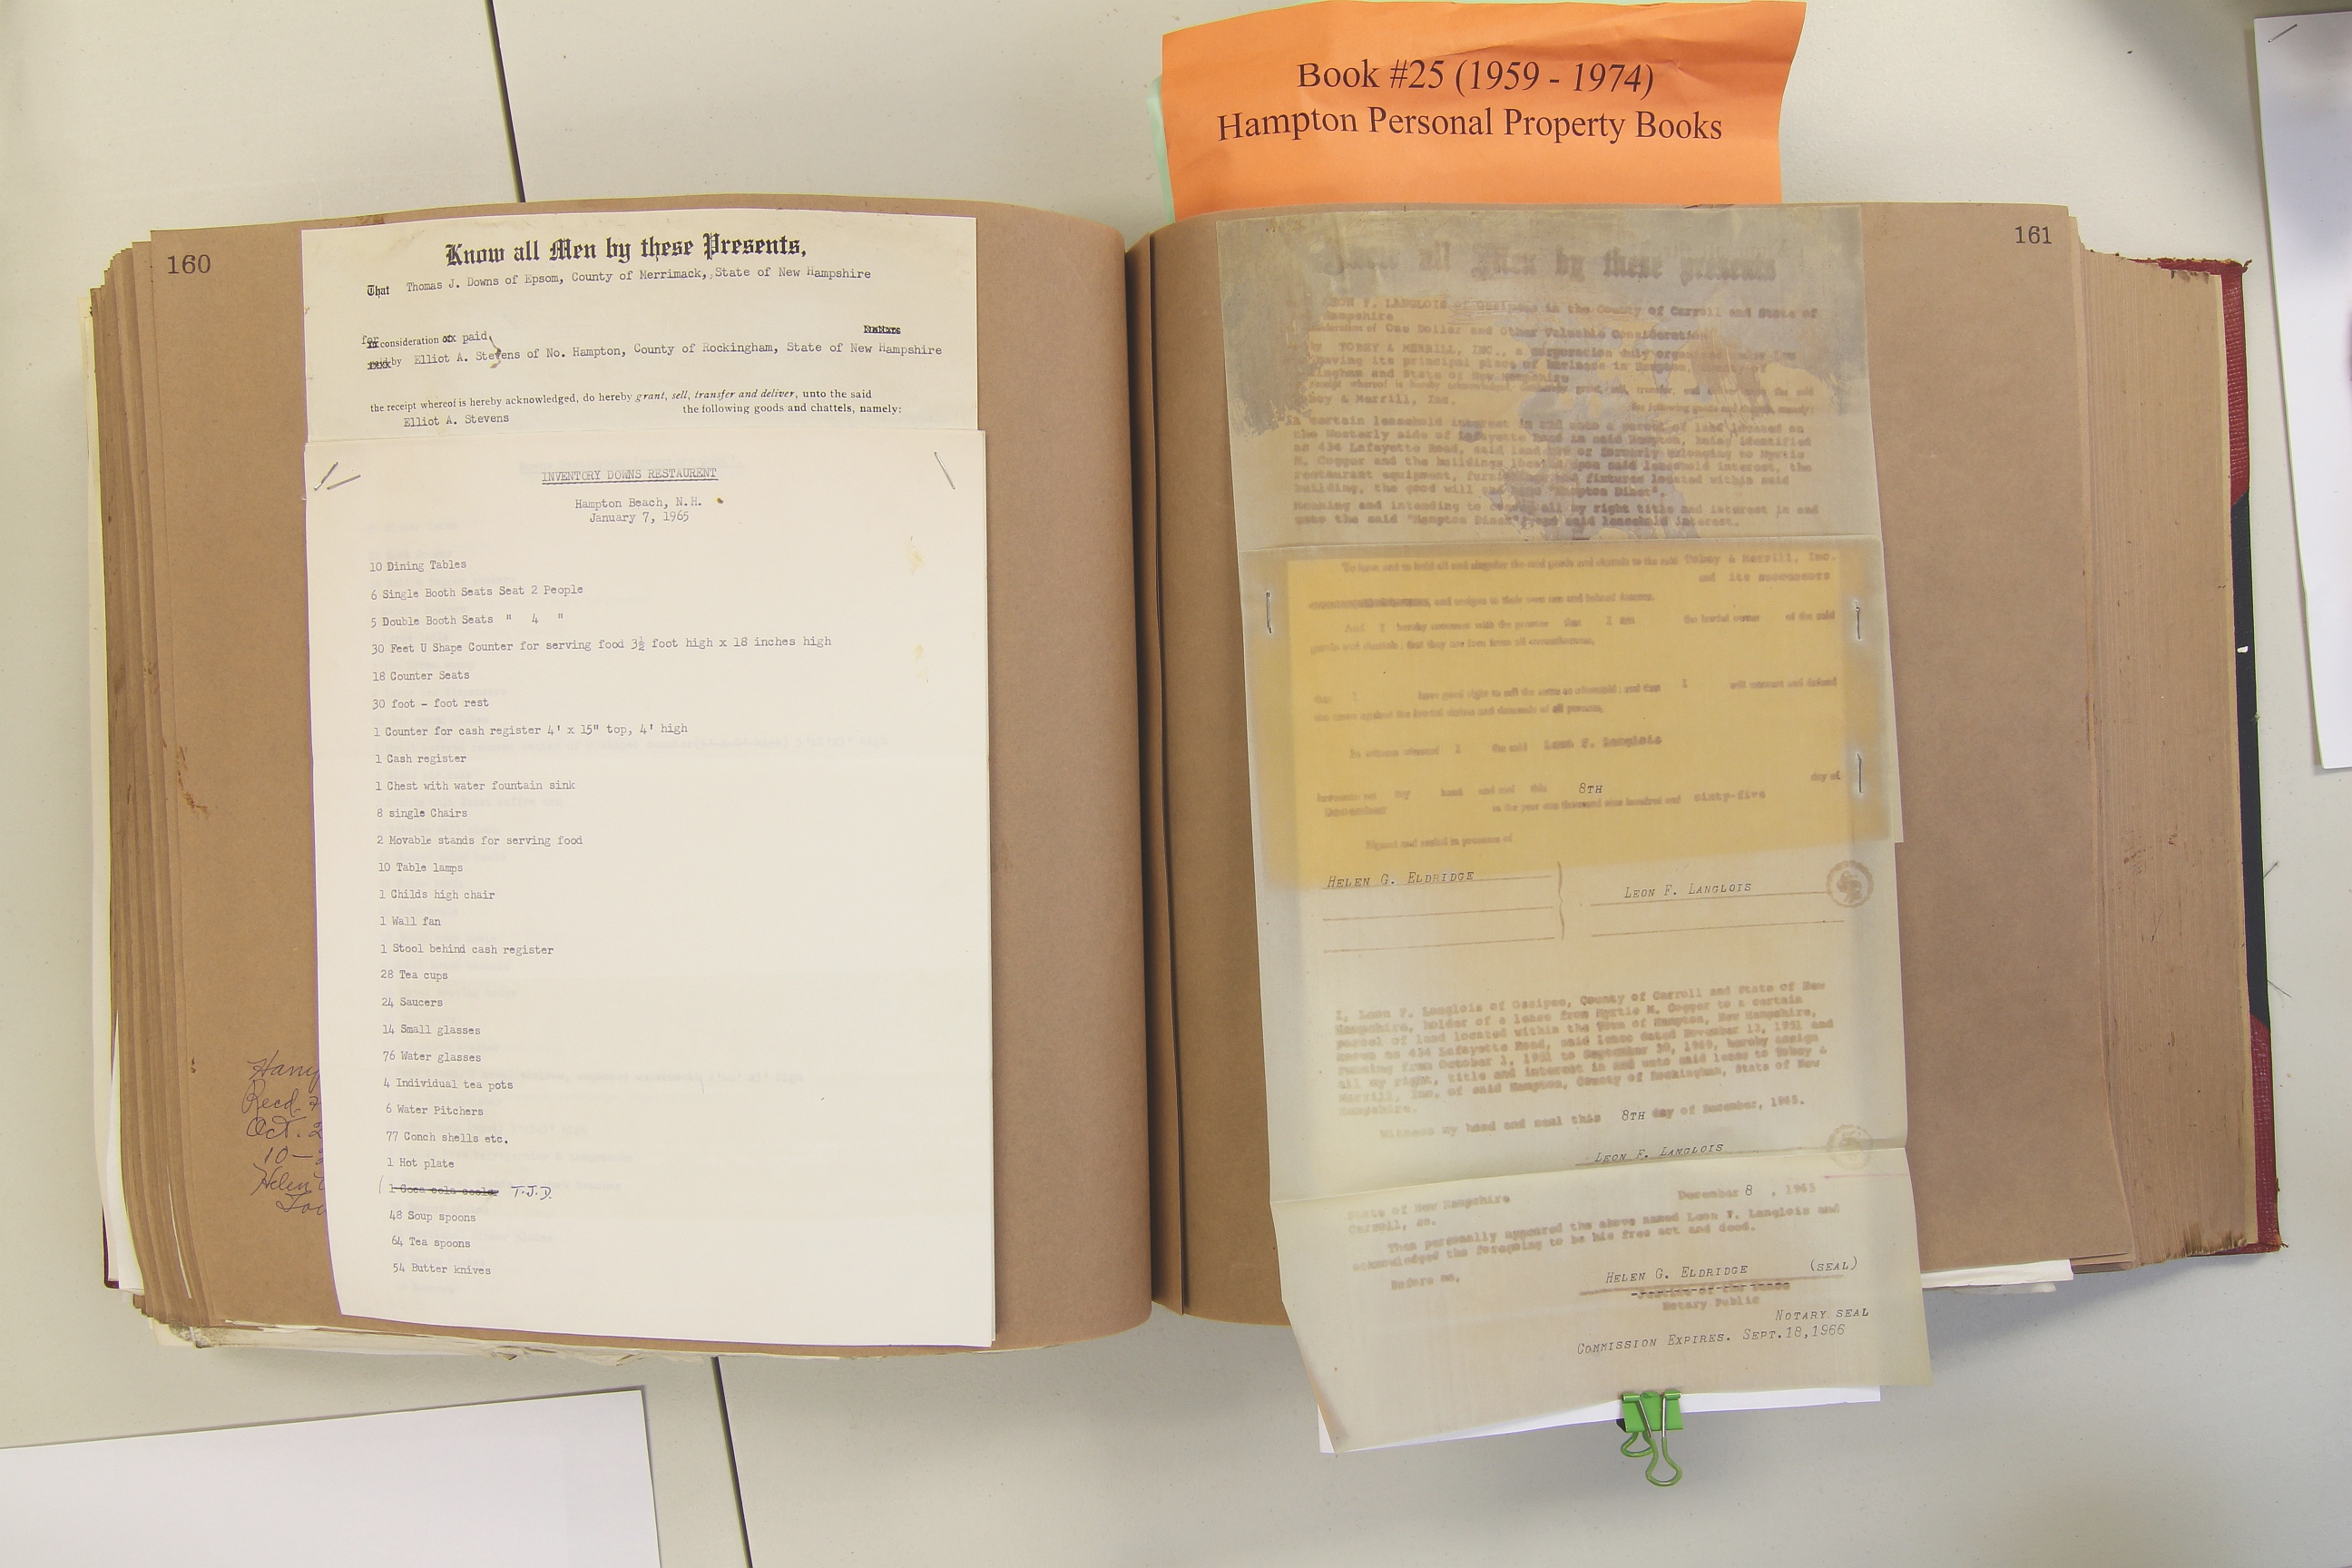 Book #25 (1959 - 1974)
Hampton Personal Property Books
160
Know all Men by these Presents,
That Thomas J. Downs of Epsom, County of Merrimack, State of New Hampshire
for consideration paid
by Elliot A. Stevens of No. Hampton, County of Rockingham, State of New Hampshire
the receipt whereof is hereby acknowledged, do hereby grant, sell, transfer and deliver, unto the said
Elliot A. Stevens the following goods and chattels, namely:
INVENTORY DOWNS RESTAURENT
Hampton Beach, N.H.
January 7, 1965
10 Dining Tables
6 Single Booth Seats Seat 2 People
5 Double Booth Seats " 4 "
30 Feet U Shape Counter for serving food 3½ foot high x 18 inches high
18 Counter Seats
30 foot - foot rest
1 Counter for cash register 4' x 15" top, 4' high
1 Cash register
1 Chest with water fountain sink
8 single Chairs
2 Movable stands for serving food
10 Table lamps
1 Childs high chair
1 Wall fan
1 Stool behind cash register
28 Tea cups
24 Saucers
14 Small glasses
76 Water glasses
4 Individual tea pots
6 Water Pitchers
77 Conch shells etc.
1 Hot plate
1 Coca cola cooler T.J.D.
48 Soup spoons
64 Tea spoons
54 Butter knives
Recd.
Oct. 2
10-
Helen
161
Know all Men by these presents
LEON F. LANGLOIS of Ossipee in the County of Carroll and State of
Hampshire
consideration of One Dollar and Other Valuable Consideration
by TOBEY & MERRILL, INC., a corporation duly organized
having its principal place of business in Hampton, County of
and State of New Hampshire
receipt whereof is hereby acknowledged, do hereby grant, sell, transfer, and deliver unto the said
& Merrill, Inc. the following goods and chattels, namely:
A certain leasehold interest in and unto a parcel of land located on
the Westerly side of Lafayette Road in said Hampton, being identified
as 434 Lafayette Road, said land now or formerly belonging to Myrtie
M. Copper and the buildings located upon said leasehold interest, the
restaurant equipment, furnishings and fixtures located within said
building, the good will and name "Hampton Diner".
Meaning and intending to convey all my right title and interest in and
unto the said "Hampton Diner" and said leasehold interest.
To have and to hold all and singular the said goods and chattels to the said Tobey & Merrill, Inc.
and its successors
and assigns to their own use and behoof forever.
And I hereby covenant with the grantee that I am the lawful owner of the said
goods and chattels; that they are free from all encumbrances,
that I have good right to sell the same as aforesaid; and that I will warrant and defend
the same against the lawful claims and demands of all persons,
In witness whereof I the said Leon F. Langlois
hereunto set my hand and seal this 8TH day of
December in the year one thousand nine hundred and sixty-five
Signed and sealed in presence of
HELEN G. ELDRIDGE
LEON F. LANGLOIS
I, Leon F. Langlois of Ossipee, County of Carroll and State of New
Hampshire, holder of a lease from Myrtie M. Copper to a certain
parcel of land located within the Town of Hampton, New Hampshire,
known as 434 Lafayette Road, said lease dated November 13, 1951 and
running from October 1, 1951 to September 30, 1969, hereby assign
all my right, title and interest in and unto said lease to Tobey &
Merrill, Inc. of said Hampton, County of Rockingham, State of New
Hampshire.
Witness my hand and seal this 8TH day of December, 1965.
LEON F. LANGLOIS
State of New Hampshire December 8, 1965
Carroll, ss.
Then personally appeared the above named Leon F. Langlois and
acknowledged the foregoing to be his free act and deed.
Before me,
HELEN G. ELDRIDGE (SEAL)
Justice of the Peace
Notary Public
NOTARY SEAL
COMMISSION EXPIRES. SEPT.18,1966